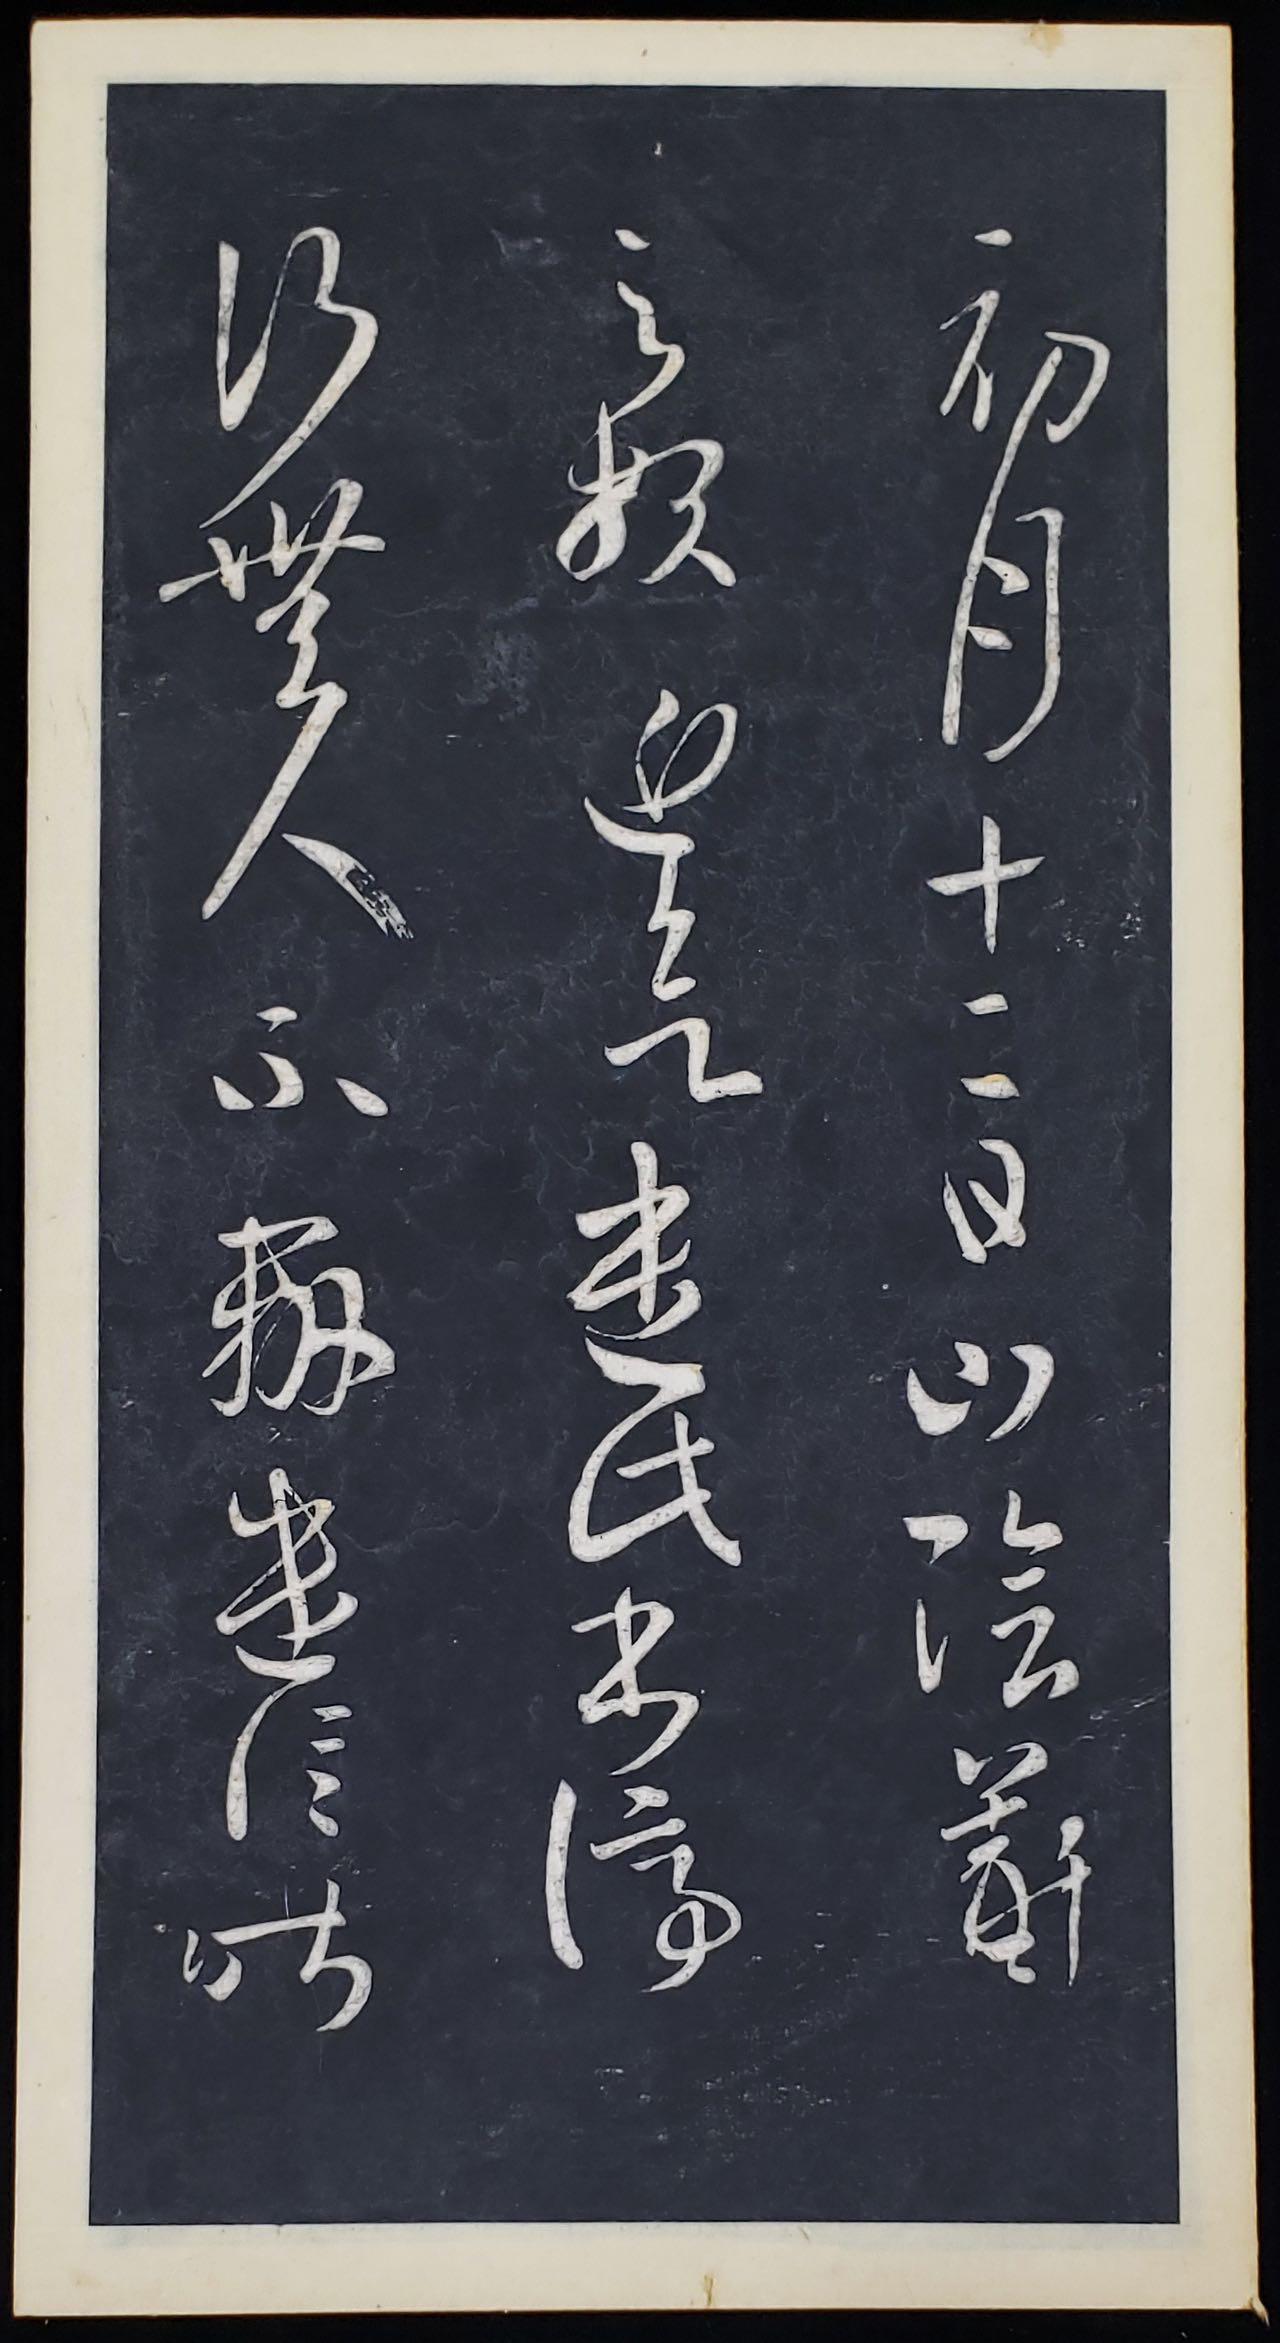 初月十二日山陰羲
之報近欲遣此書停
行無人不辦遣信昨